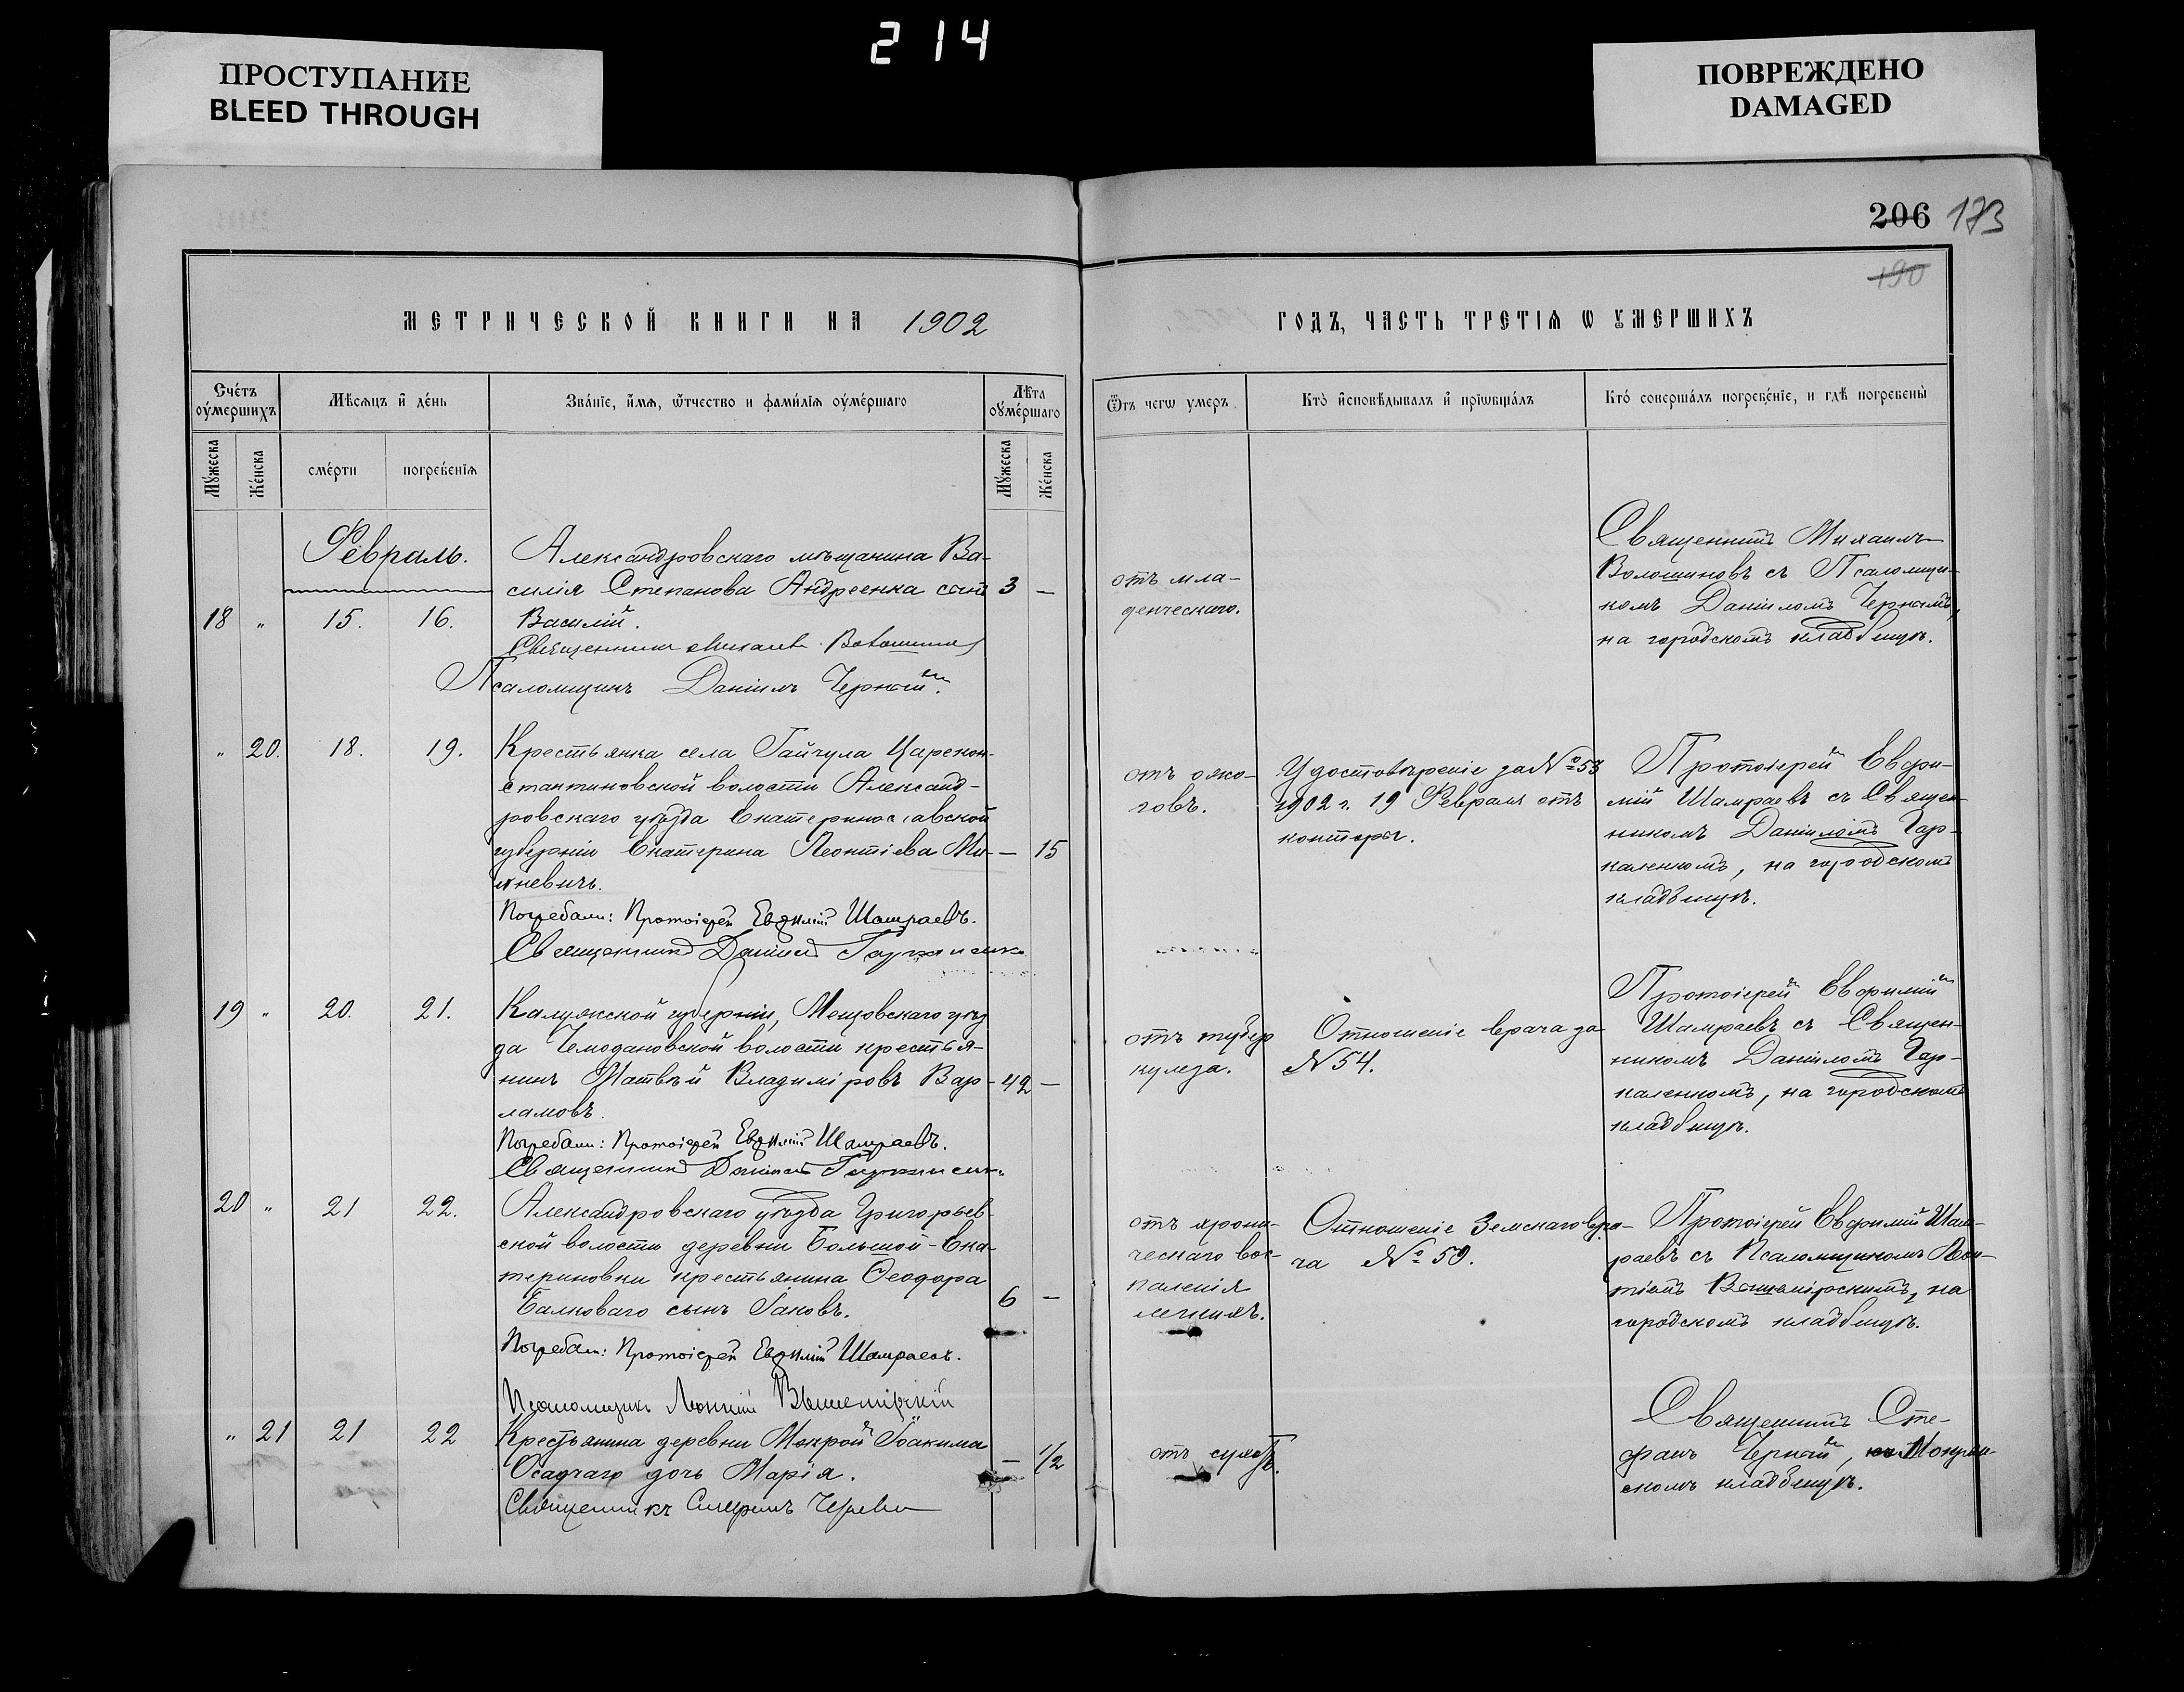 214
ПРОСТУПАНИЕ
BLEED THROUGH
ПОВРЕЖДЕНО
DAMAGED
206 173
190
МЕТРИЧЕСКОЙ КНИГИ НА 1902
ГОДЪ, ЧАСТЬ ТРЕТІѦ Ѡ ꙊМЕРШИХЪ
Счетъ оумершихъ
Мѣсяцъ и день
Званіе, имѧ, ѿчество и фамиліѧ оумершаго
Лѣта оумершаго
Ѿ чегѡ умеръ
Кто исповѣдывалъ и пріѡбщалъ
Кто совершалъ погребеніе, и гдѣ погребены
Мужеска
Женска
смерти
погребеніѧ
Мужеска
Женска
Февраль.
Александровскаго мѣщанина Ва-
силія Степанова Андреенка сынъ 3 —
18 " 15. 16. Василій.
Священникъ Михаилъ Волошиновъ
Псаломщикъ Даніилъ Черный.
отъ мла-
денческаго.
Священникъ Михаилъ
Волошиновъ съ Псаломщи-
комъ Даніиломъ Чернымъ,
на городскомъ кладбищѣ.
" 20. 18. 19. Крестьянка села Гайчула Царекон-
стантиновской волости Александ-
ровскаго уѣзда Екатеринославской
губерніи Екатерина Леонтіева Ми- — 15
хневичъ.
Погребали: Протоіерей Евфимій Шамраевъ.
Священникъ Даніилъ Гаркаленко
отъ ожо-
говъ.
Удостовѣреніе за № 53
1902 г. 19 Февраля отъ
конторы.
Протоіерей Евфи-
мій Шамраевъ съ Священ-
никомъ Даніиломъ Гар-
каленкомъ, на городскомъ
кладбищѣ.
19 " 20. 21. Калужской губерніи, Мещовскаго уѣз
да Чемодановской волости крестья-
нинъ Матвѣй Владиміровъ Вар- 42 —
ламовъ.
Погребали: Протоіерей Евфимій Шамраевъ.
Священникъ Даніилъ Гаркаленко
отъ тубер
кулеза.
Отношеніе врача за
№ 54.
Протоіерей Евфимій
Шамраевъ съ Священ-
никомъ Даніиломъ Гар-
каленкомъ, на городскомъ
кладбищѣ.
20 " 21 22. Александровскаго уѣзда Григорьев-
ской волости деревни Большой-Ека-
териновки крестьянина Ѳеодора
Балковаго сынъ Іаковъ. 6 —
Погребали: Протоіерей Евфимій Шамраевъ.
Псаломщикъ Леонтій Вышемірскій
отъ хрони-
ческаго вос-
паленія
легкихъ.
Отношеніе Земскаго вра-
ча № 50.
Протоіерей Евфимій Шам-
раевъ съ Псаломщикомъ Леон-
тіемъ Вышемірскимъ, на
городскомъ кладбищѣ.
" 21 21 22 Крестьянина деревни Мокрой Іоакима
Осадчаго дочь Марія. — 1/2
Священникъ Стефанъ Черный
отъ сухотъ.
Священникъ Сте-
фанъ Черный, на Мокрян-
скомъ кладбищѣ.